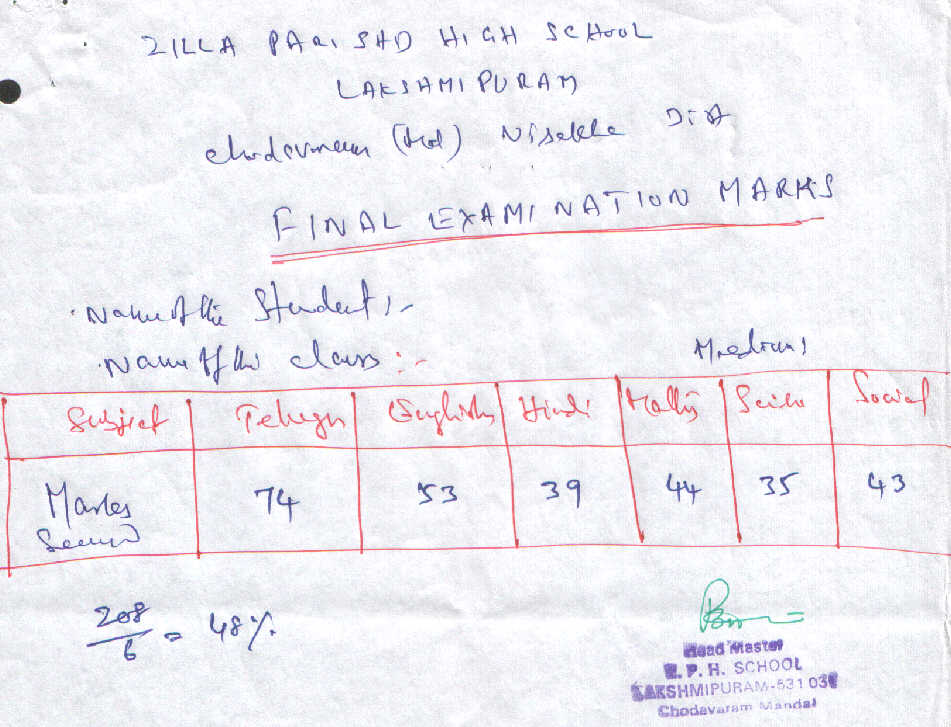 ZILLA PARISHD HIGH SCHOOL
LAKSHMIPURAM
(Mdl) Dist
FINAL EXAMINATION MARKS
Name of the Student :-
Name of the class :- Medium :
Subject Telugu English Hindi Maths Social
Marks 74 53 39 44 35 43
Secured
208
6 = 48%
Head Master
Z. P. H. SCHOOL
LAKSHMIPURAM-531 03
Chodavaram Mandal